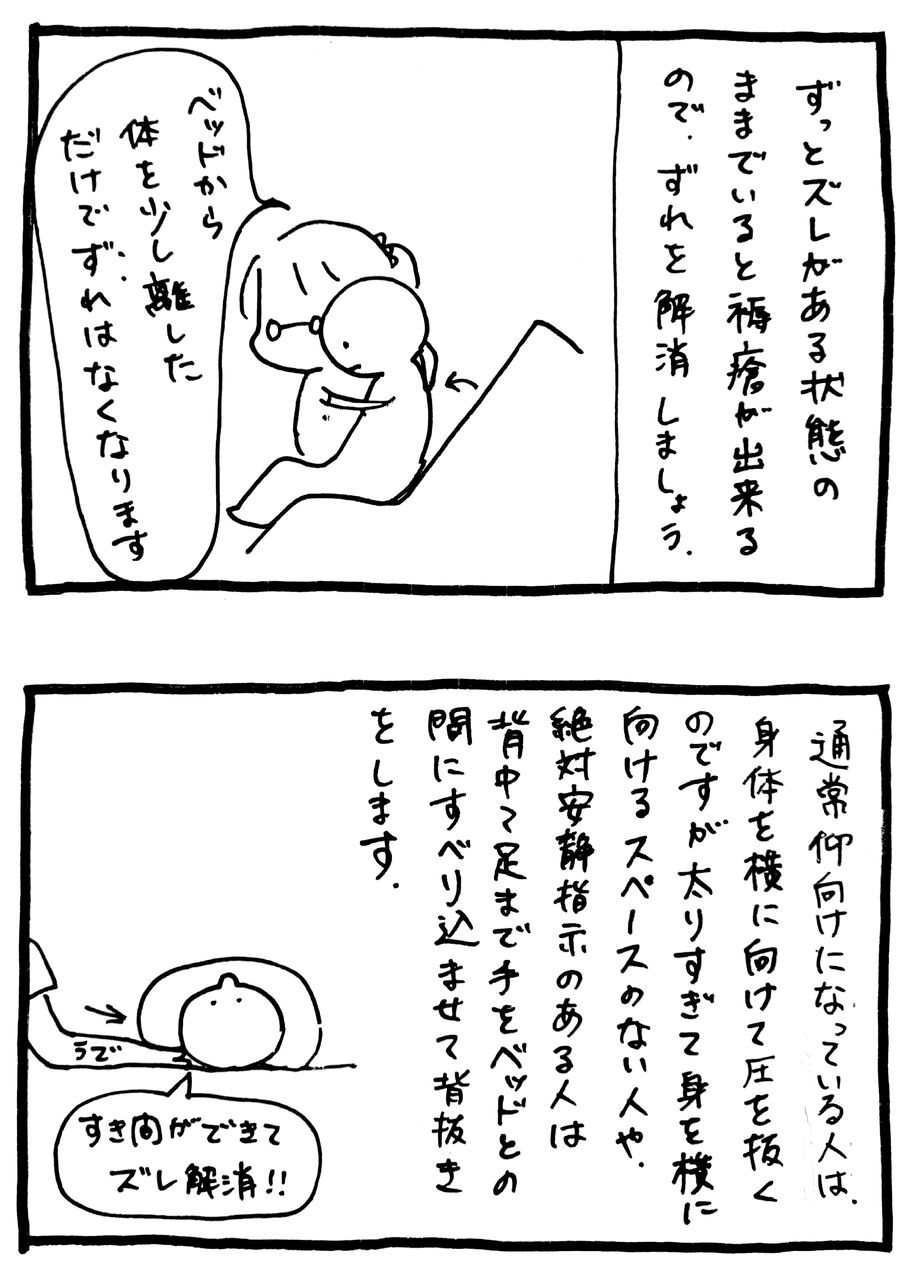 ずっとズレがある状態の
ままでいると褥瘡が出来る
ので、ずれを解消しましょう。
ベッドから
体を少し離した
だけでずれはなくなります
通常仰向けになっている人は、
身体を横に向けて圧を抜く
のですが太りすぎて身を横に
向けるスペースのない人や、
絶対安静指示のある人は
背中て足まで手をベッドとの
間にすべり込ませて背抜き
をします。
うで
すき間ができて
ズレ解消!!